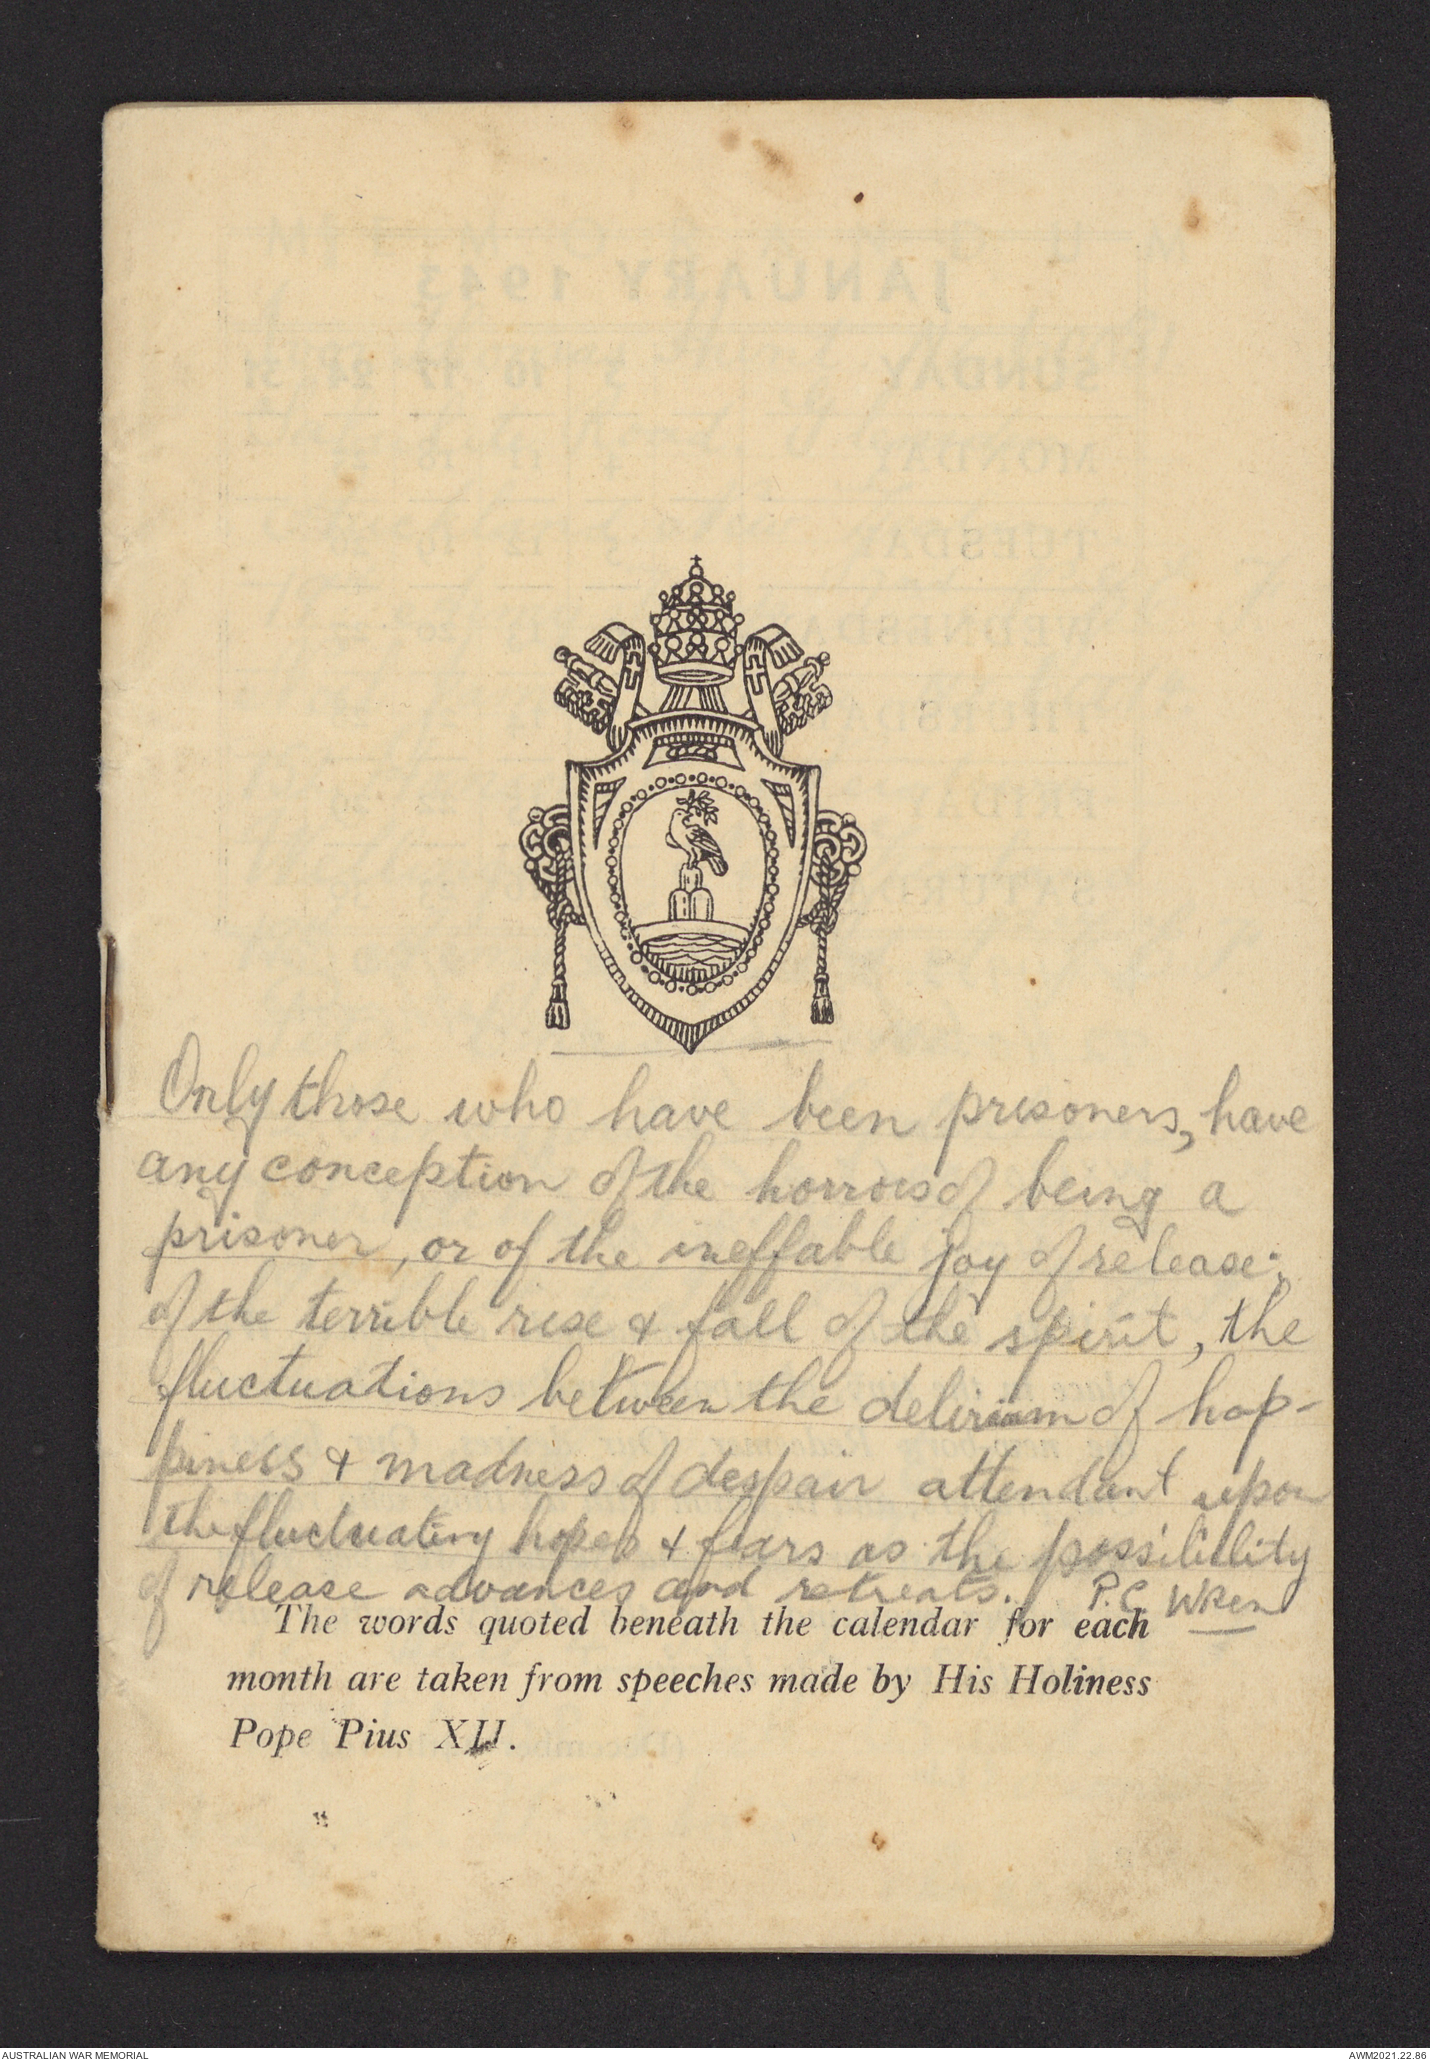 JANUARY 1943
SUNDAY 3 10 17 24 31
MONDAY 4 11 18
TUESDAY
Only those who have been prisoners, have
any conception of the horrors of being a
prisoner, or of the ineffable joy of release;
of the terrible rise & fall of the spirit, the
fluctuations between the delirium of hap-
piness & madness of despair attendant upon
the fluctuating hopes & fears as the possibility
of release advances and retreats. P.C. Wren
The words quoted beneath the calendar for each
month are taken from speeches made by His Holiness
Pope Pius XII.
AUSTRALIAN WAR MEMORIAL
AWM2021.22.86